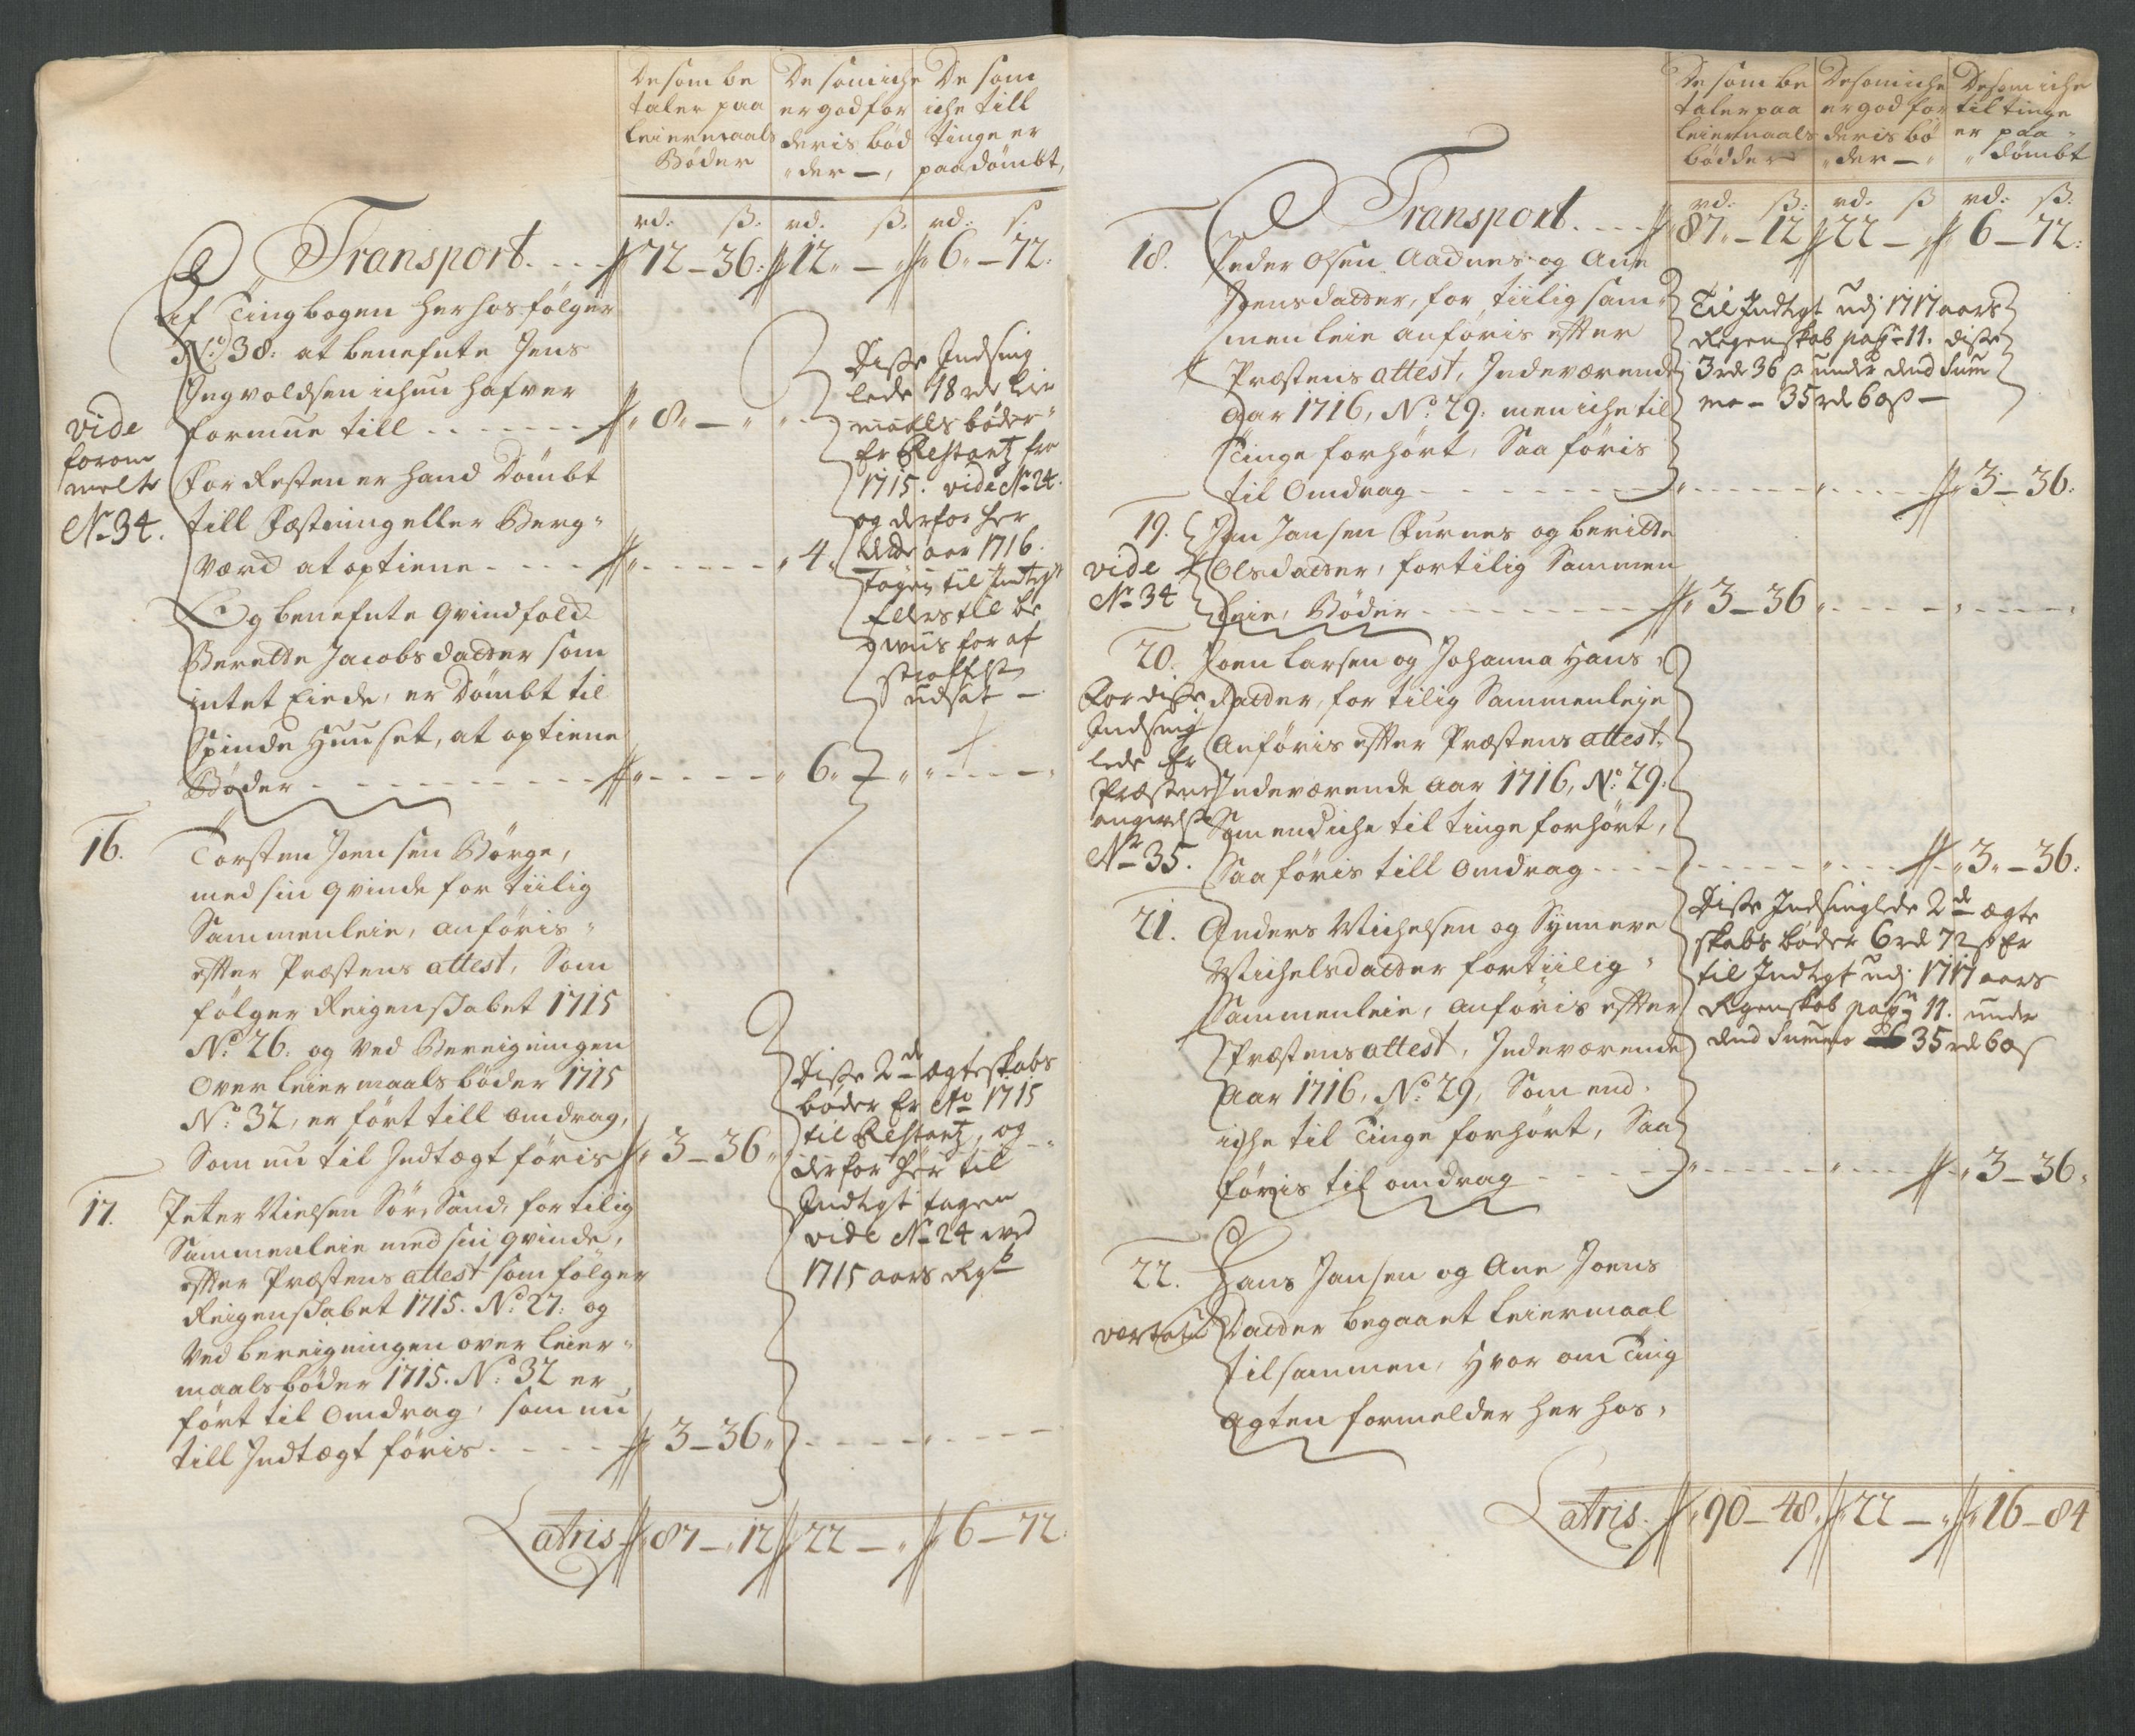 De som be
taler paa
Leiermaals
Bøder
De som iche
er god for
deris bød
der —,
De som
iche till
tinge er
paadømbt,
rd: ß. rd. ß. rd: ß
Transport. - - - 72 – 36: 12 – 6 – 72:
af Tingbogen herhos følger
No: 38: at benefnte Jens
Ingvoldsen ichun hafver
formue till - - - - - - 8 –
vide
forom
melte
No 34.
For Resten er hand Dømbt
till Fæstning eller Berg-
værd at optiene - - - - - - - - - 4
Og benefnte qvindfold
Berette Jacobsdatter som
intet Eiede, er Dømbt til
Spinde Huuset, at optiene
Bøder - - - - - - - - - - - - 6 –
Disse Indsing
lede 18 rd Lei
maals bøder
Er Restantz fra
1715. vide No 24.
og derfor her
udj aar 1716.
tagen til Indtgt
Ellers til be
qwiis for af
straffelse
udsat –
16.
Torsten Joensen Børge,
med sin qvinde for tiilig
Sammenleie, anføris
efter Præstens attest, Som
følger Reigenskabet 1715
No: 26. og ved Bereigningen
over leiermaals bøder 1715
No: 32, er ført till omdrag,
Som nu til Indtægt føris 3 – 36
17.
Peter Nielsen Sør, Sand, for tilig
Sammenleie med sin qvinde,
efter Præstens attest som følger
Reigenskabet 1715. No: 27: og
ved bereigningen over leier-
maals bøder 1715. No: 32 er
ført til omdrag, som nu
till Indtægt føris - - - - 3 – 36
Disse 2de ægteskabs
bøder Er Ao 1715
til Restantz, og
derfor her til
Indtgt tagen
vide No 24 ved
1715 aars Rgb
Latris 87 – 12 22 – 6 – 72:
De som be
taler paa
leiermaals
bødder
De som iche
er god for
deris bø
der —
De som iche
til tinge
er paa-
dømbt
rd: ß: rd. ß rd: ß.
Transport. - - - 87 – 12 22 – 6 – 72:
18.
Peder Olsen Aadnes og Ane
Jensdatter, for tiilig sam-
men leie anføris efter
Præstens attest, Indeværende
Aar 1716, No: 29: men iche til
Tinge forhørt, Saa føris
til Omdrag - - - - - - - 3 – 36:
Til Indtgt udj 1717 aars
Regenskab pag 11. disse
3 rd 36 ß under dend Sum
ma – 35 rd 60 ß –
19.
vide
No 34
Jan Jansen Furnes og beritte
Olsdatter, for tilig Sammen
leie, Bøder - - - - - - 3 – 36
20.
Joen Larsen og Johanna Hans
datter, for tilig Sammenleje
Anføris efter Præstens attest
Indeværende Aar 1716, No: 29:
Som end iche til tinge forhørt,
Saa føris till omdrag - - - - 3 – 36:
For disse
Indsing
lede Er
Præstens
angivelse
No 35.
21.
Anders Michelsen og Synneve
Michelsdatter for tiilig
Sammenleie, anføris efter
Præstens attest, Indeværende
Aar 1716, No: 29, Som end
iche til Tinge forhørt, Saa
føris til omdrag - - - - 3 – 36
Disse Indsinglede 2de ægte
skabs bøder 6 rd 72 ß Er
til Indtgt udj 1717 aars
Regenskab pag 11. under
dend Summa 35 rd 60 ß
22.
Hans Jansen og Ane Joens
Datter begaaet leiermaal
tilsammen, Hvor om Ting
agten formelder her hos,
Latris. 90 – 48 22 – 16 – 84